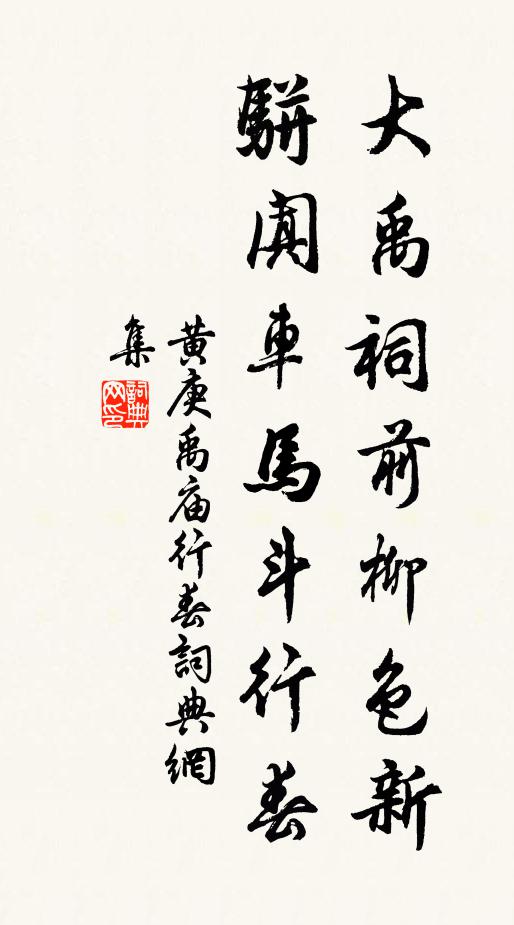 大禹祠前柳色新
駢闐車馬斗行春
黄庚禹庙行春詞典網
集
詞典網印